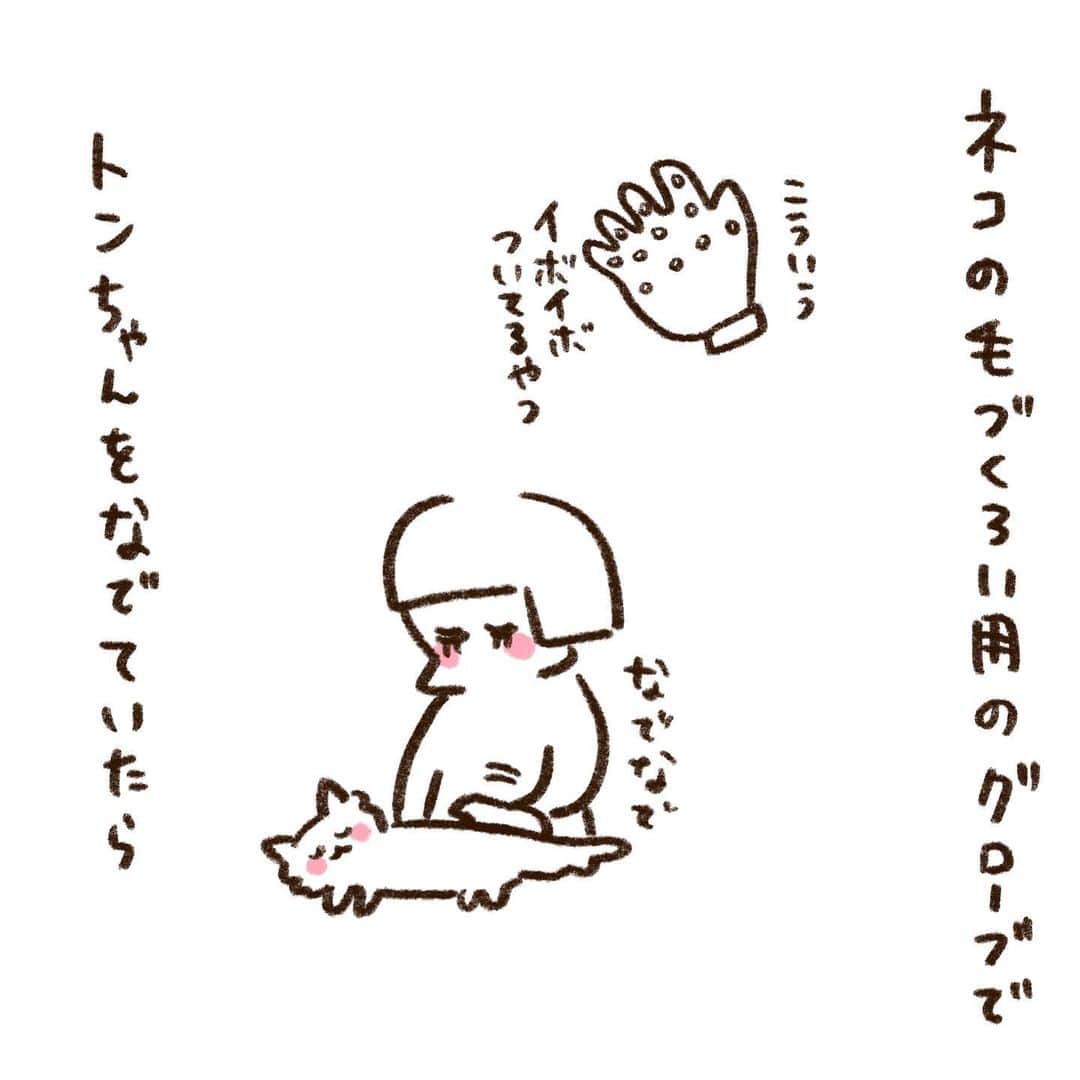 ネコの毛づくろい用のグローブで
こういう
イボイボ
ついてるやつ
なでなで
トンちゃんをなでていたら